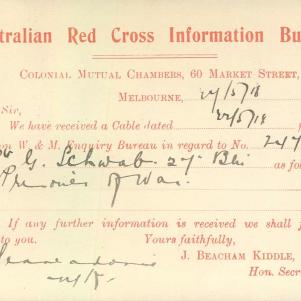 tralian Red Cross Information Bu
COLONIAL MUTUAL CHAMBERS, 60 MARKET STREET,
MELBOURNE, 27/5/18
Sir,
We have received a Cable dated 22/5/18
on W. & M. Enquiry Bureau in regard to No 247
G. Schwab 27 Bn as fo
Prisoner of War.
If any further information is received we shall f
to you. Yours faithfully,
J. BEACHAM KIDDLE,
Hon. Secre